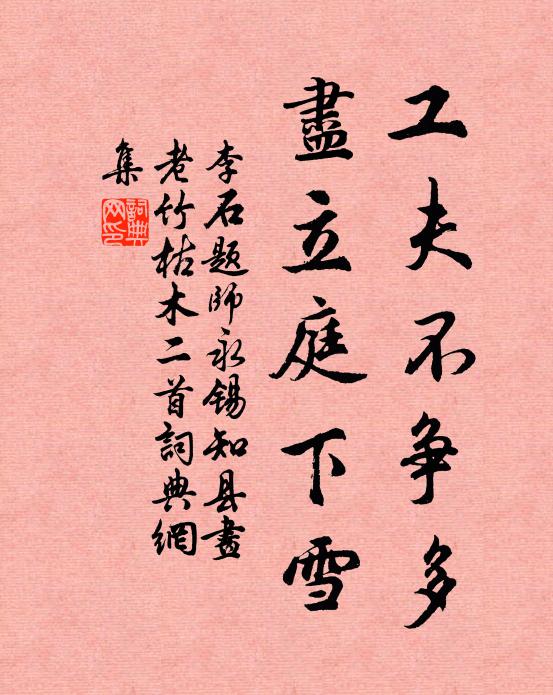 工夫不争多
盡立庭下雪
李石題師永锡知县畫
老竹枯木二首詞典網
集
詞典网印